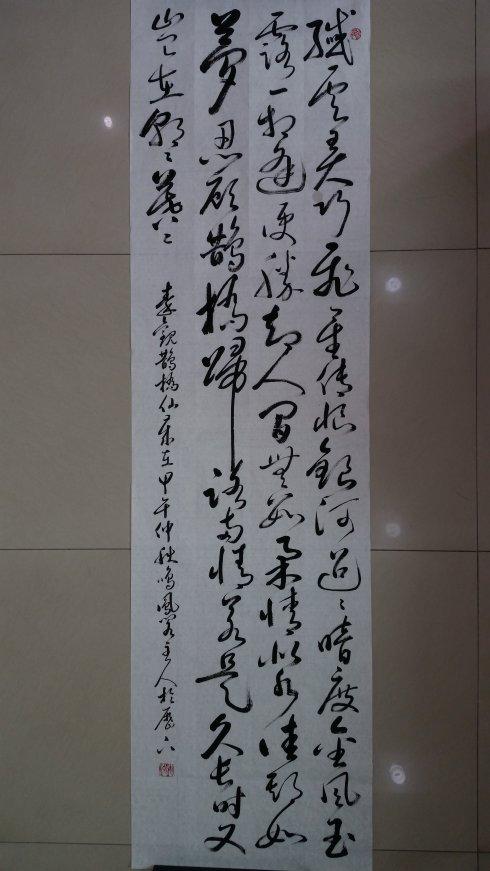 纖雲弄巧飛星傳恨銀河迢〻暗度金風玉
露一相逢便勝却人間無數柔情似水佳期如
夢忍顧鵲橋歸路兩情若是久長時又
豈在朝〻暮〻
秦觀鵲橋仙歲在甲午仲秋鳴鳳閣主人於歷下